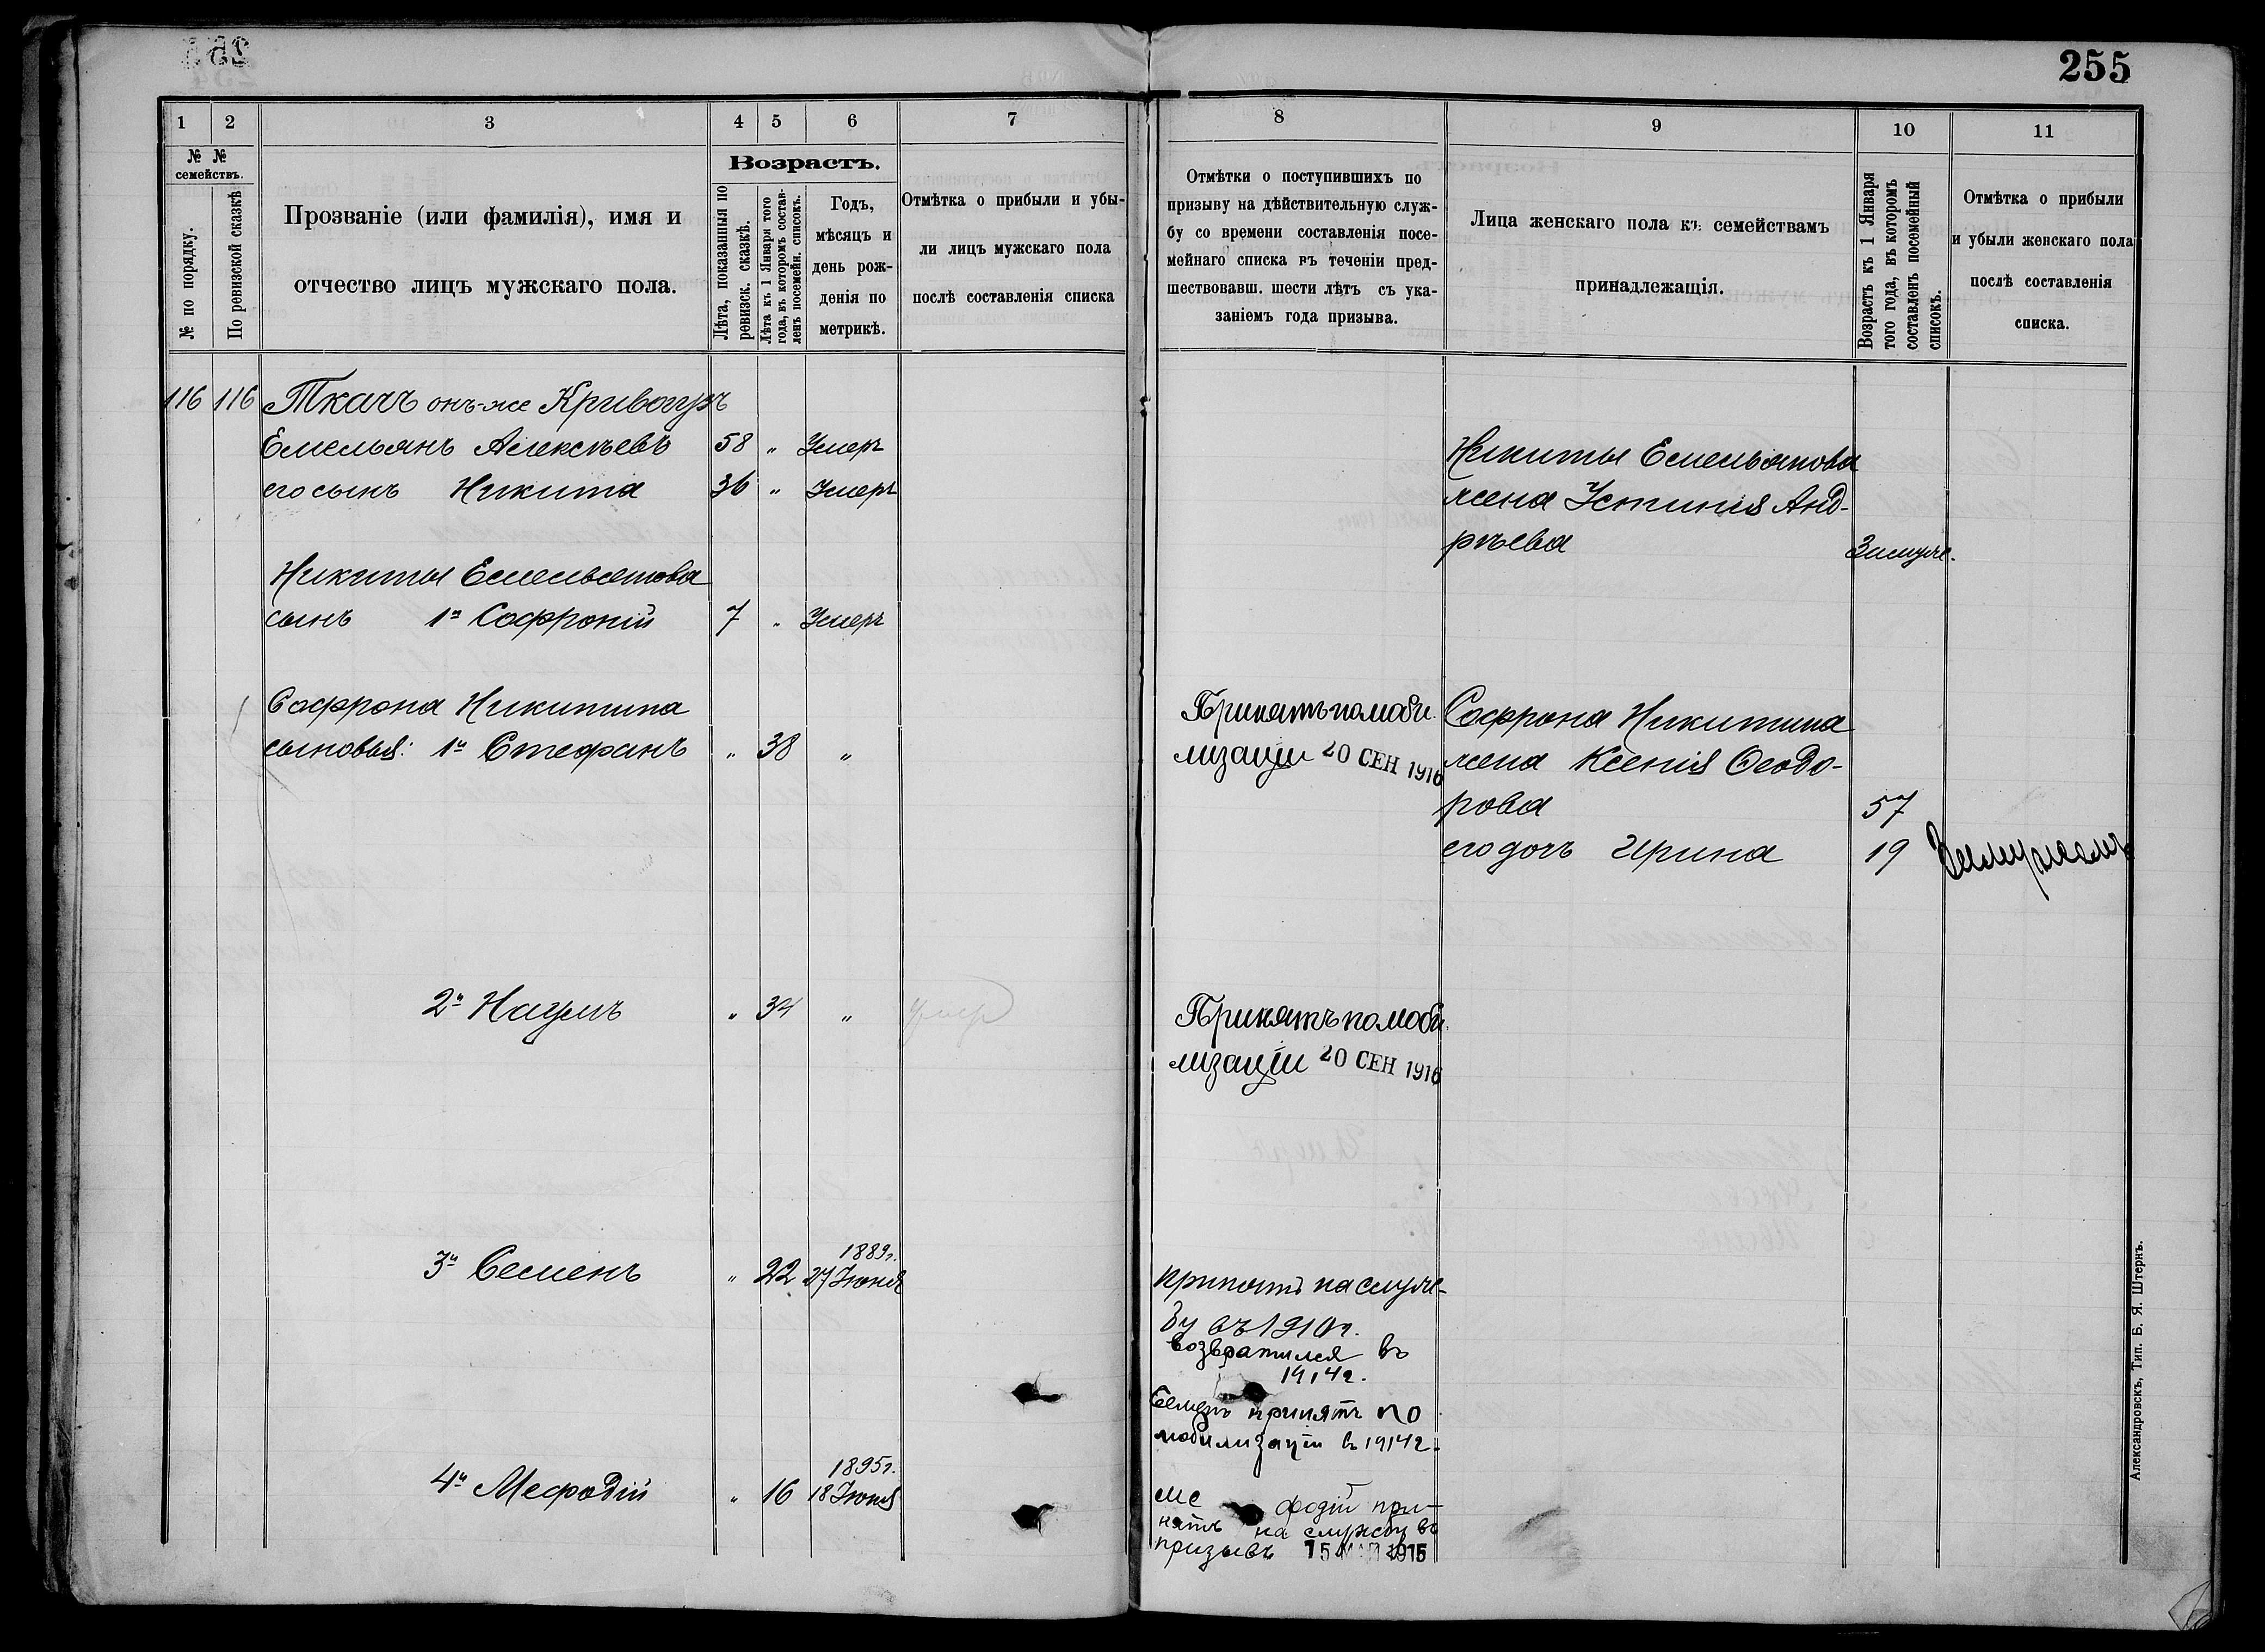 255
1
2
3
4
5
6
7
№ №
семействъ.
№ по порядку.
По ревизской сказкѣ
Прозваніе (или фамилія), имя и
отчество лицъ мужскаго пола.
Возрастъ.
Лѣта, показанныя по
ревизск. сказкѣ.
Лѣта къ 1 Января того
года, въ которомъ состав-
ленъ посемейн. списокъ.
Годъ,
мѣсяцъ и
день рож-
денія по
метрикѣ.
Отмѣтка о прибыли и убы-
ли лицъ мужскаго пола
послѣ составленія списка
116 116 Ткачъ онъ-же Кривогузъ
Емельянъ Алексѣевъ 58 „ Умеръ
его сынъ Никита 36 „ Умеръ
Никиты Емельянова
сынъ 1й Софроній 7 „ Умеръ
Софрона Никитина
сыновья: 1й Стефанъ „ 38 „
2й Наумъ „ 34 „ умер
1889г.
3й Семенъ „ 22 27 Іюня
1895г.
4й Мефодій „ 16 18 Іюня
8
9
10
11
Отмѣтки о поступившихъ по
призыву на дѣйствительную служ-
бу со времени составленія посе-
мейнаго списка въ теченіи пред-
шествовавш. шести лѣтъ съ ука-
заніемъ года призыва.
Лица женскаго пола къ семействамъ
принадлежащія.
Возрастъ къ 1 Января
того года, въ которомъ
составленъ посемейный
списокъ.
Отмѣтка о прибыли
и убыли женскаго пола
послѣ составленія
списка.
Никиты Емельянова
жена Устинія Анд-
рѣева Замуже.
Принятъ по моби-
лизаціи 20 СЕН 1916
Софрона Никитина
жена Ксенія Ѳеодо-
рова 57
его дочь Ирина 19 Замужемъ
Принятъ по моби-
лизаціи 20 СЕН 1916
принятъ на служ-
бу въ 1910г.
возвратился въ
1914г.
Семенъ принятъ по
мобилизаціи в 1914г.
Ме фодій при-
нятъ на службу въ
призывъ 15 МАЯ 1915
Александровскъ, Тип. Б. Я. Штернъ.